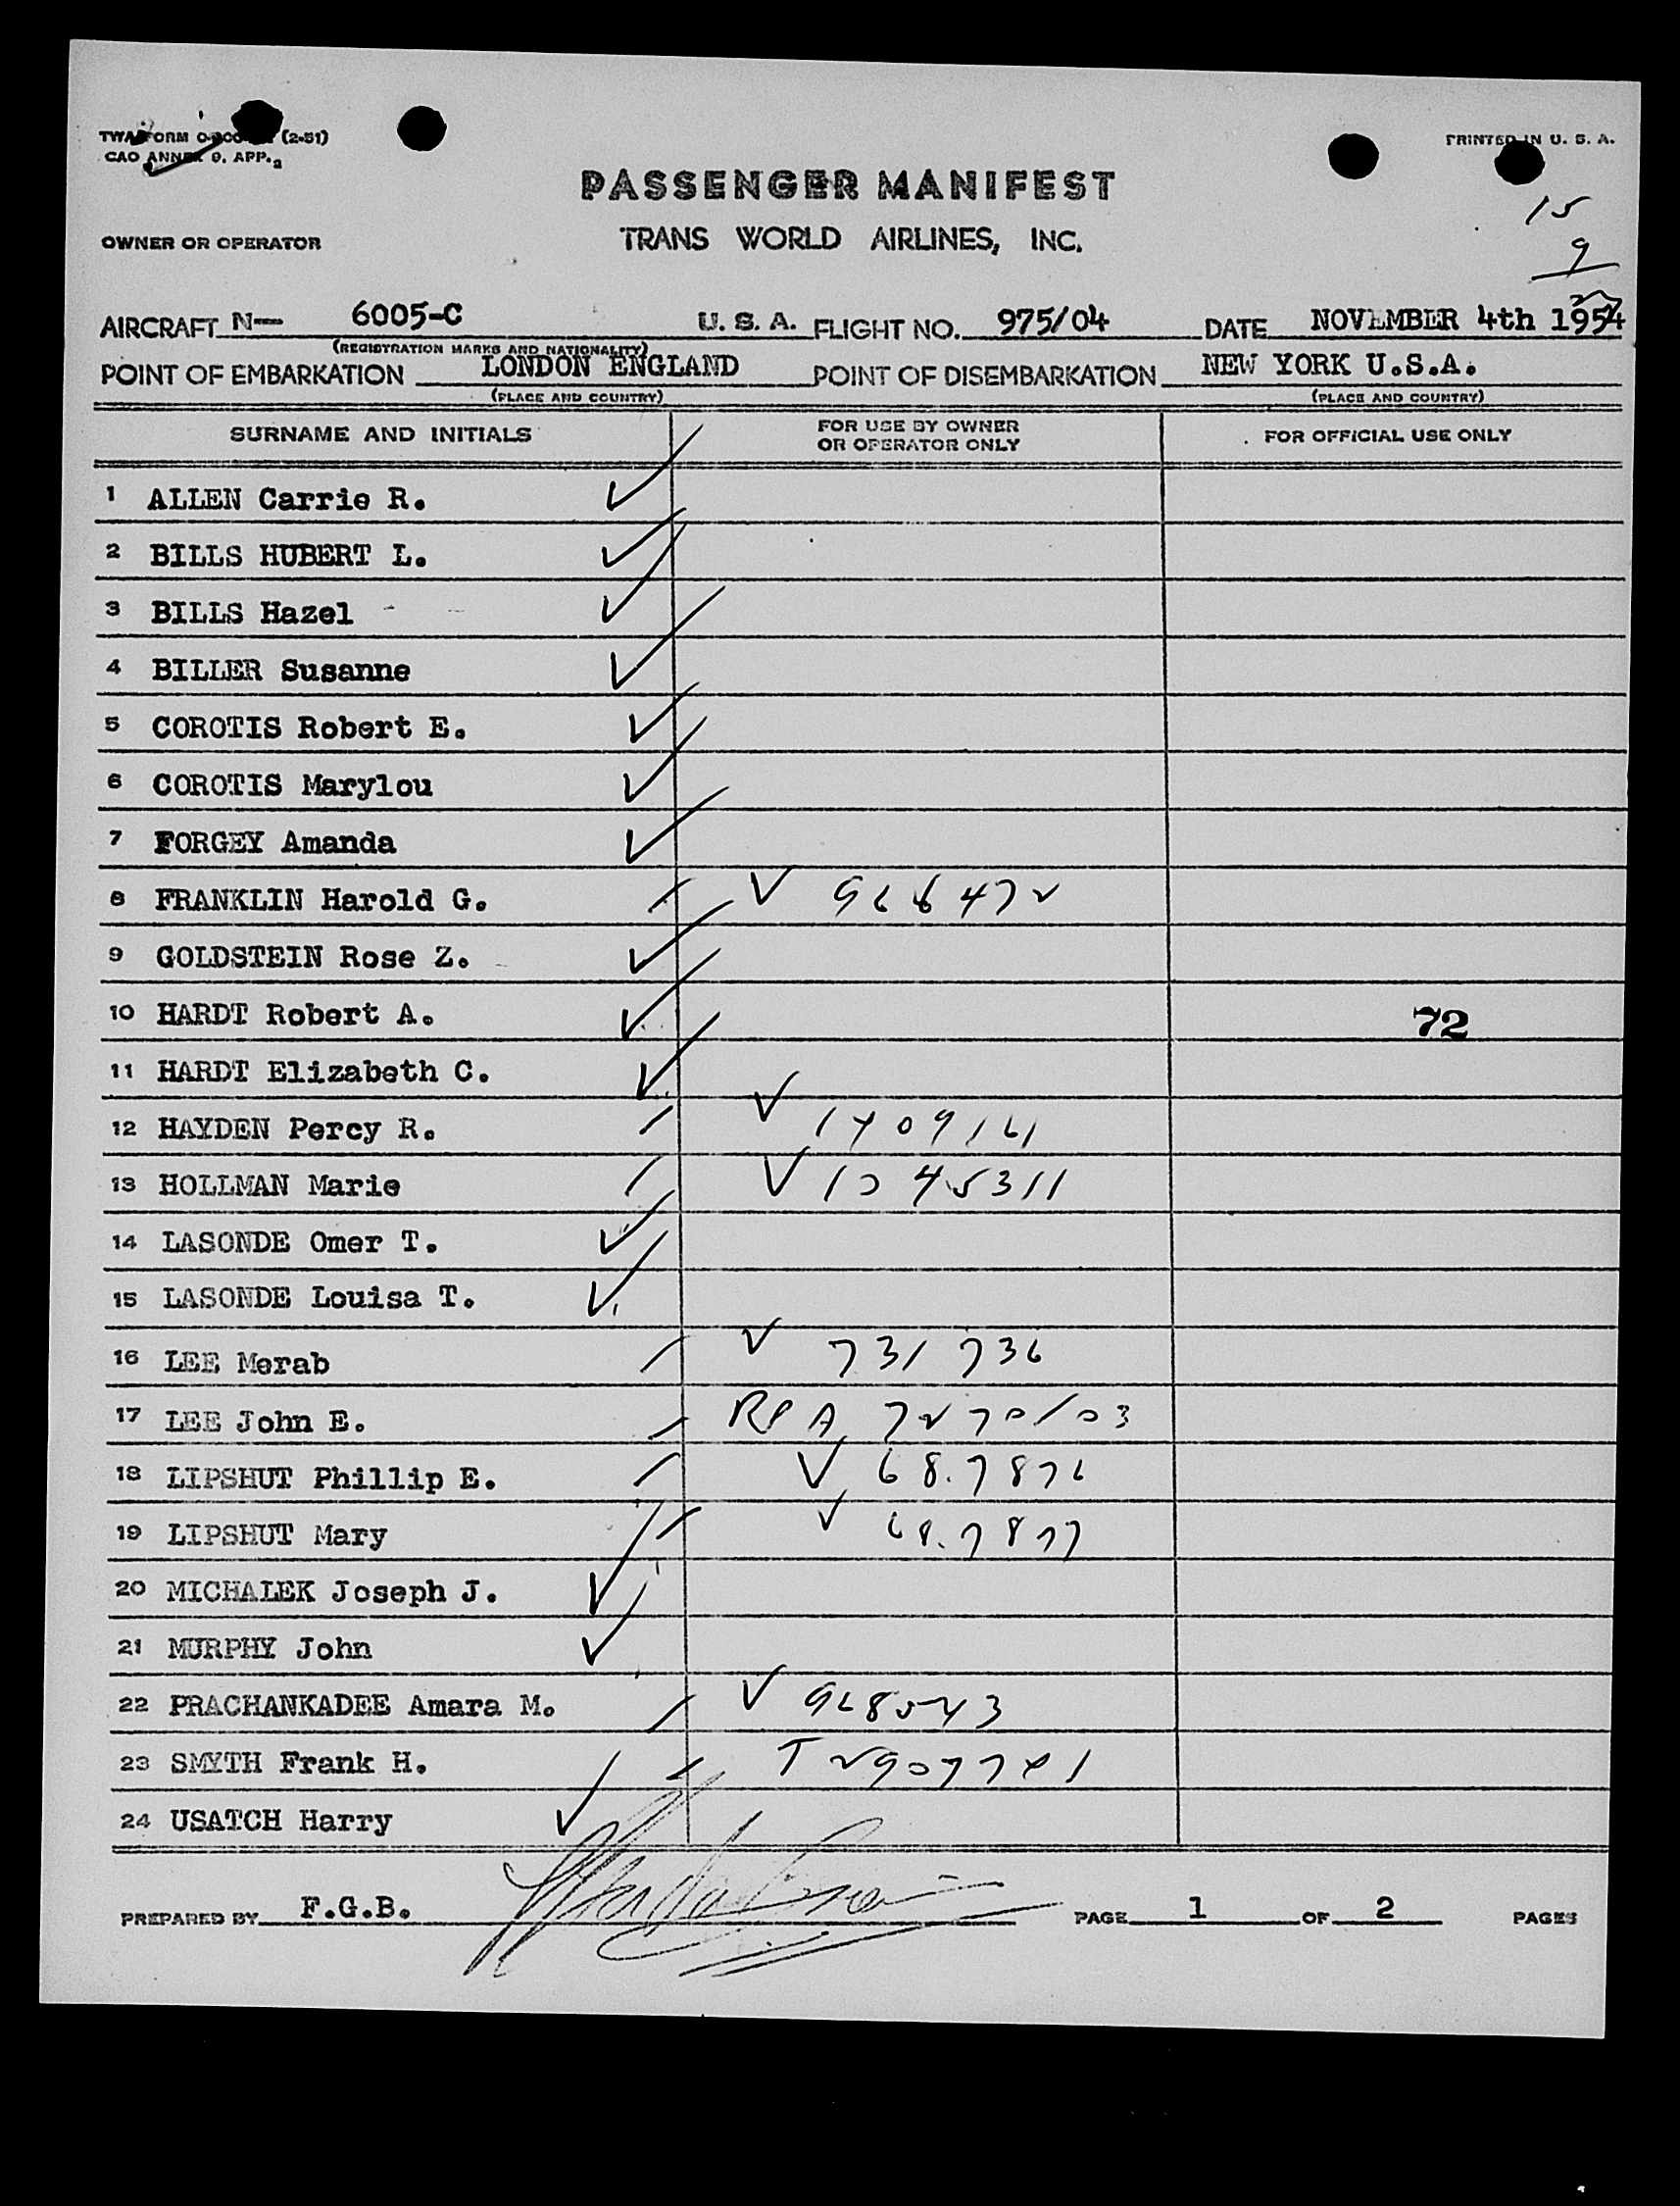 TWA FORM (2-51)
PRINTED IN U. S. A.
CAO ANNEX 9, APP. 2
PASSENGER MANIFEST
15
OWNER OR OPERATOR TRANS WORLD AIRLINES, INC.
9
AIRCRAFT N- 6005-C U. S. A. FLIGHT NO. 975/04 DATE NOVEMBER 4th 1954
(REGISTRATION MARKS AND NATIONALITY)
POINT OF EMBARKATION LONDON ENGLAND POINT OF DISEMBARKATION NEW YORK U.S.A.
(PLACE AND COUNTRY) (PLACE AND COUNTRY)
SURNAME AND INITIALS FOR USE BY OWNER OR OPERATOR ONLY FOR OFFICIAL USE ONLY
1 ALLEN Carrie R. ✓
2 BILLS HUBERT L. ✓
3 BILLS Hazel ✓
4 BILLER Susanne ✓
5 COROTIS Robert E. ✓
6 COROTIS Marylou ✓
7 FORGEY Amanda ✓
8 FRANKLIN Harold G. / V
9 GOLDSTEIN Rose Z. ✓
10 HARDT Robert A. ✓ 72
11 HARDT Elizabeth C. ✓
12 HAYDEN Percy R. / V
13 HOLLMAN Marie / V 1045311
14 LASONDE Omer T. ✓
15 LASONDE Louisa T. ✓
16 LEE Merab / V 731736
17 LEE John E. /
18 LIPSHUT Phillip E. / V 687876
19 LIPSHUT Mary / V 687877
20 MICHALEK Joseph J. ✓
21 MURPHY John ✓
22 PRACHANKADEE Amara M. / V
23 SMYTH Frank H. /
24 USATCH Harry ✓
PREPARED BY F.G.B. PAGE 1 OF 2 PAGES